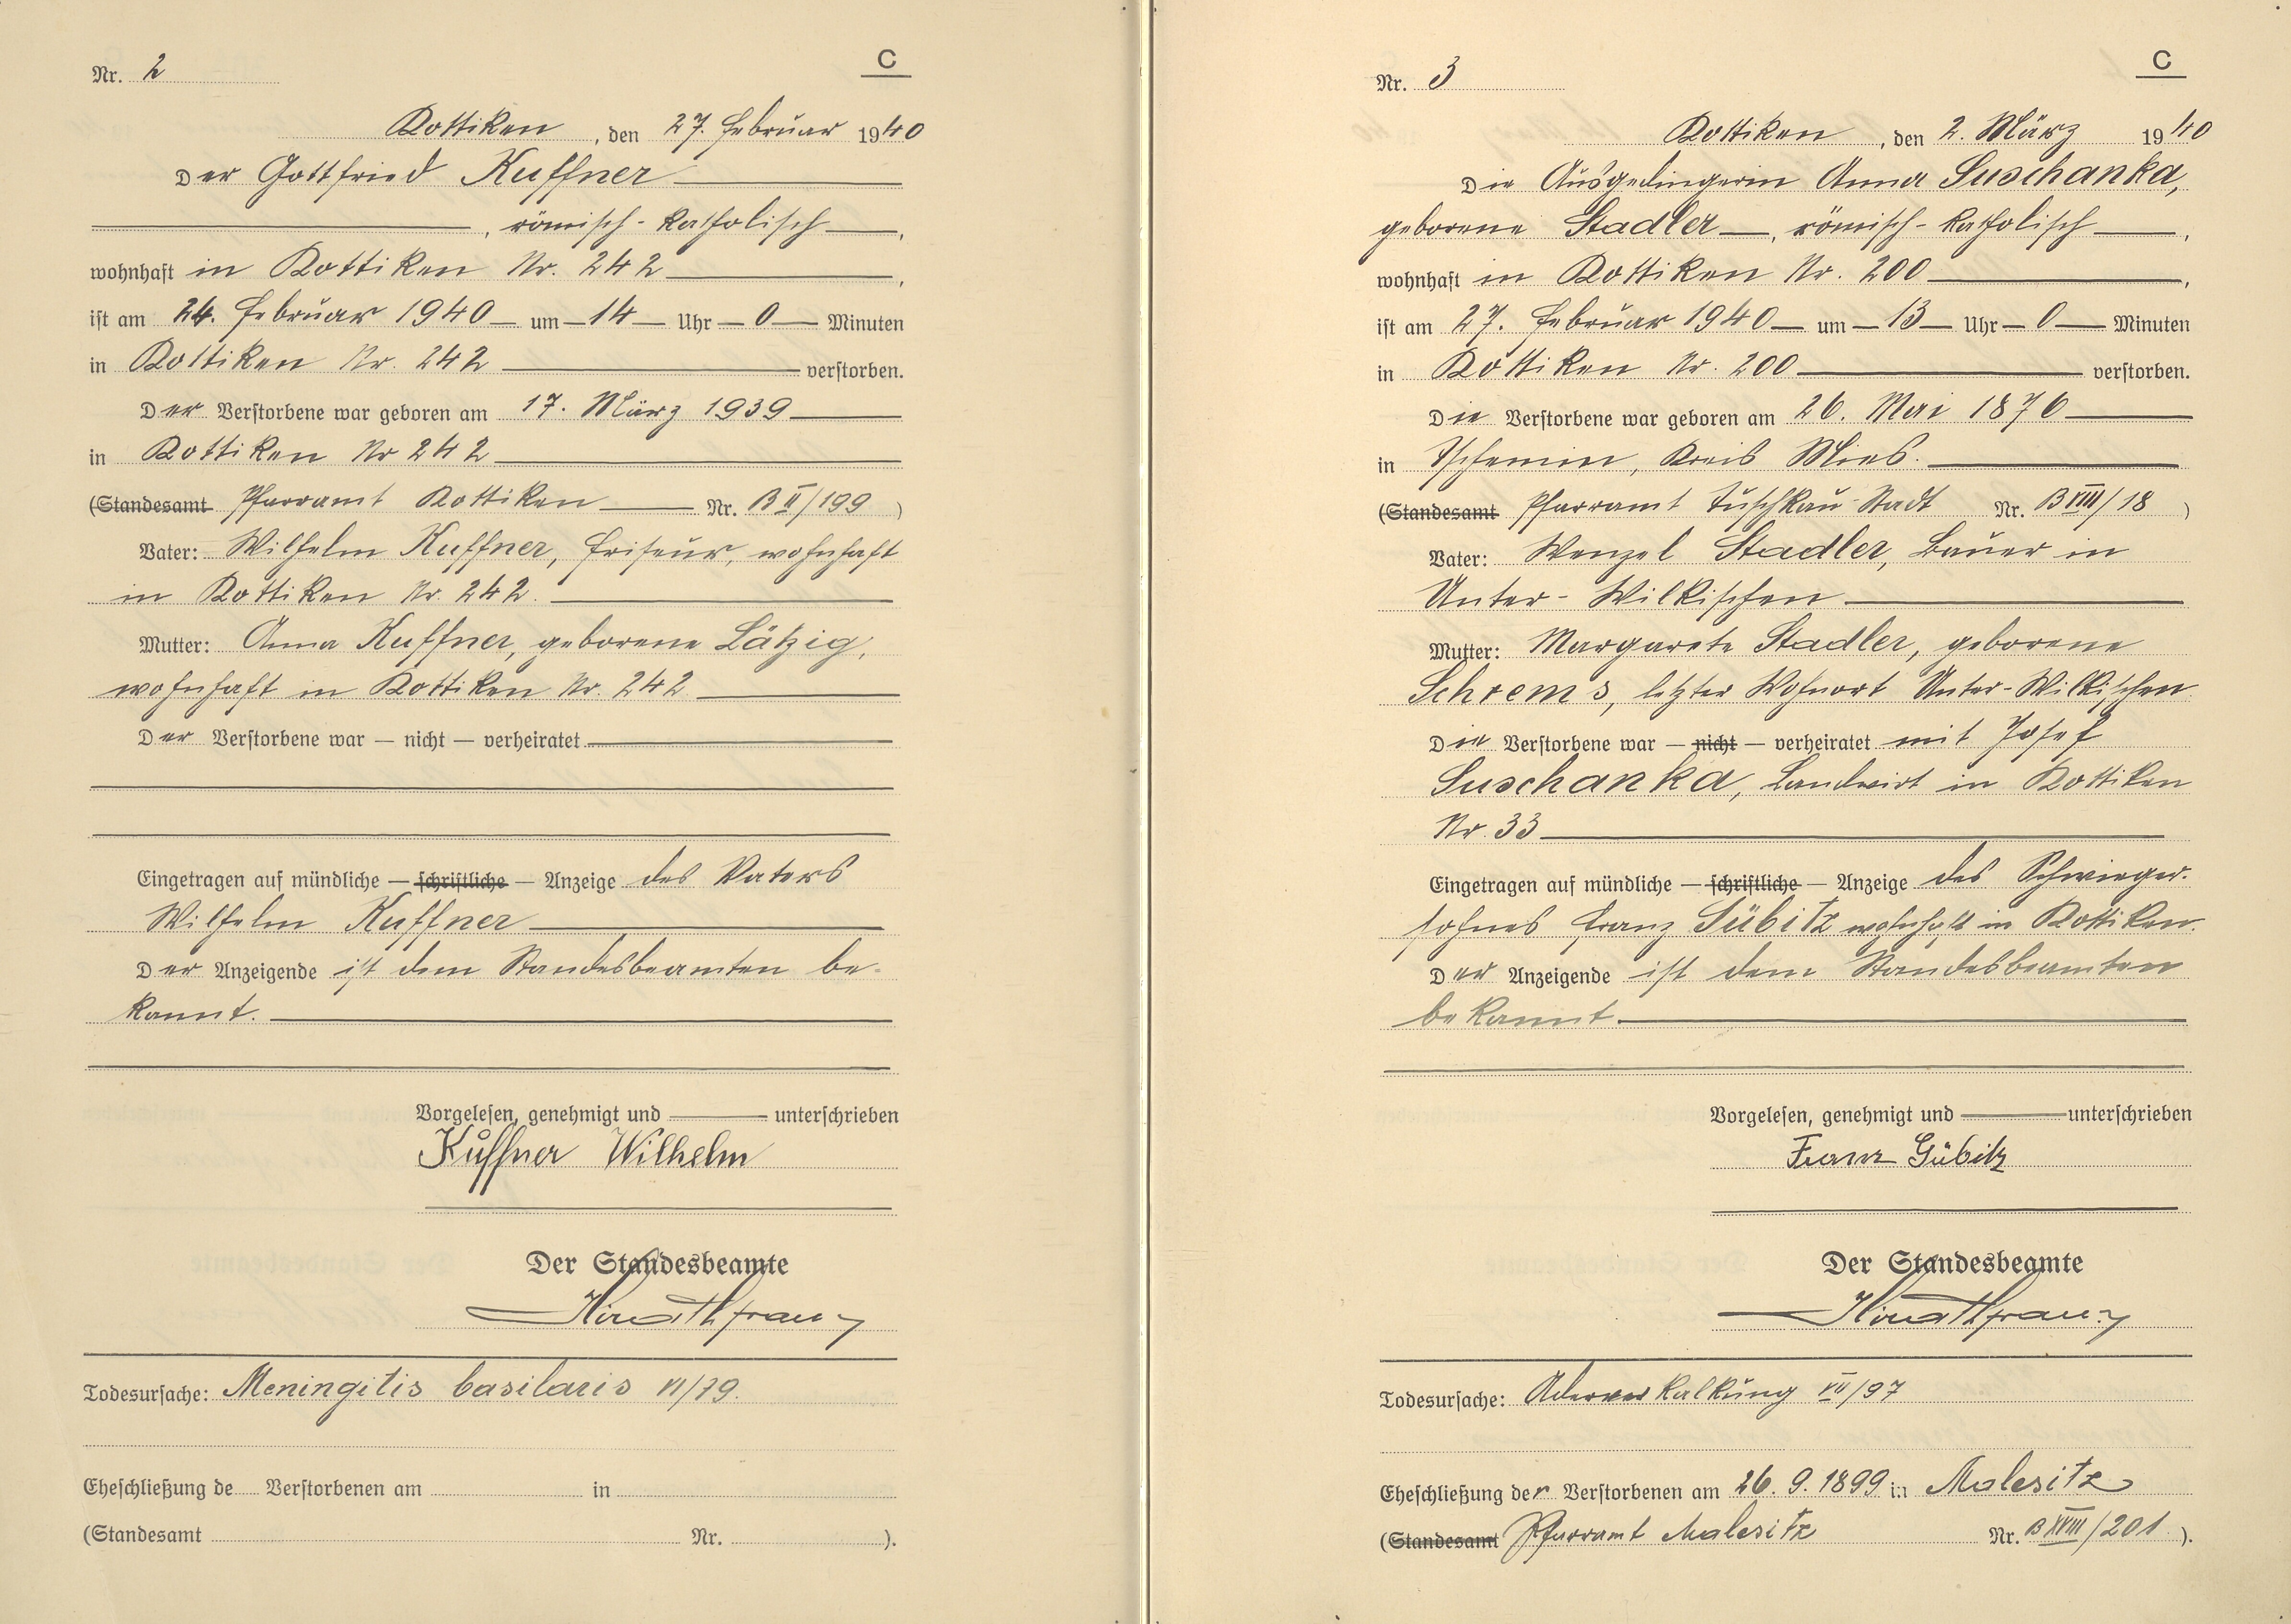 C
Nr. 2
Kottiken, den 27. Februar 1940
Der Gottfried Kuffner
, römisch-katholisch,
wohnhaft in Kottiken Nr. 242,
ist am 24. Februar 1940 um 14 Uhr 0 Minuten
in Kottiken Nr. 242 verstorben.
Der Verstorbene war geboren am 17. März 1939
in Kottiken Nr 242
(Standesamt Pfarramt Kottiken Nr. B II/199)
Vater: Wilhelm Kuffner, Friseur, wohnhaft
in Kottiken Nr. 242.
Mutter: Anna Kuffner, geborene Lätzig,
wohnhaft in Kottiken Nr. 242
Der Verstorbene war — nicht — verheiratet
Eingetragen auf mündliche — schriftliche — Anzeige des Vaters
Wilhelm Kuffner
Der Anzeigende ist dem Standesbeamten be-
kannt.
Vorgelesen, genehmigt und unterschrieben
Kuffner Wilhelm
Der Standesbeamte
Todesursache: Meningitis basilaris VI/79.
Eheschließung de Verstorbenen am in
(Standesamt Nr. ).
C
Nr. 3
Kottiken, den 2. März 1940
Die Ausgedingerin Anna Suschanka,
geborene Stadler, römisch-katholisch,
wohnhaft in Kottiken Nr. 200,
ist am 27. Februar 1940 um 13 Uhr 0 Minuten
in Kottiken Nr. 200 verstorben.
Die Verstorbene war geboren am 26. Mai 1876
in Tschemin, Kreis Mies.
(Standesamt Pfarramt Tuschkau-Stadt Nr. B XIII/18)
Vater: Wenzel Stadler, Bauer in
Unter-Wilkischen
Mutter: Margarete Stadler, geborene
Schrems, letzter Wohnort Unter-Wilkischen
Die Verstorbene war — nicht — verheiratet mit Josef
Suschanka, Landwirt in Kottiken
Nr. 33
Eingetragen auf mündliche — schriftliche — Anzeige des Schwieger-
sohnes Franz Gübitz wohnhaft in Kottiken.
Der Anzeigende ist dem Standesbeamten
bekannt.
Vorgelesen, genehmigt und unterschrieben
Franz Gübitz
Der Standesbeamte
Todesursache: Aderverkalkung VII/97
Eheschließung der Verstorbenen am 26. 9. 1899 in Malesitz
(Standesamt Pfarramt Malesitz Nr. B XVIII/201).